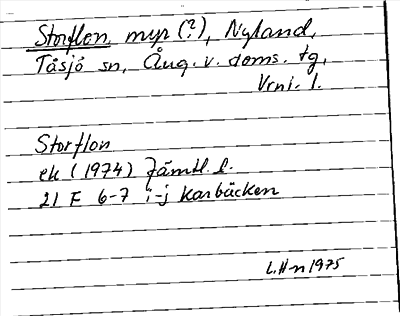 Storflon myr (?), Nyland,
Tåsjö sn, Ång. v. doms. tg,
Vrnl. l.
Storflon
ek (1974) Jämtl. l.
21 F 6-7 i-j Karbäcken
L.H-n 1975